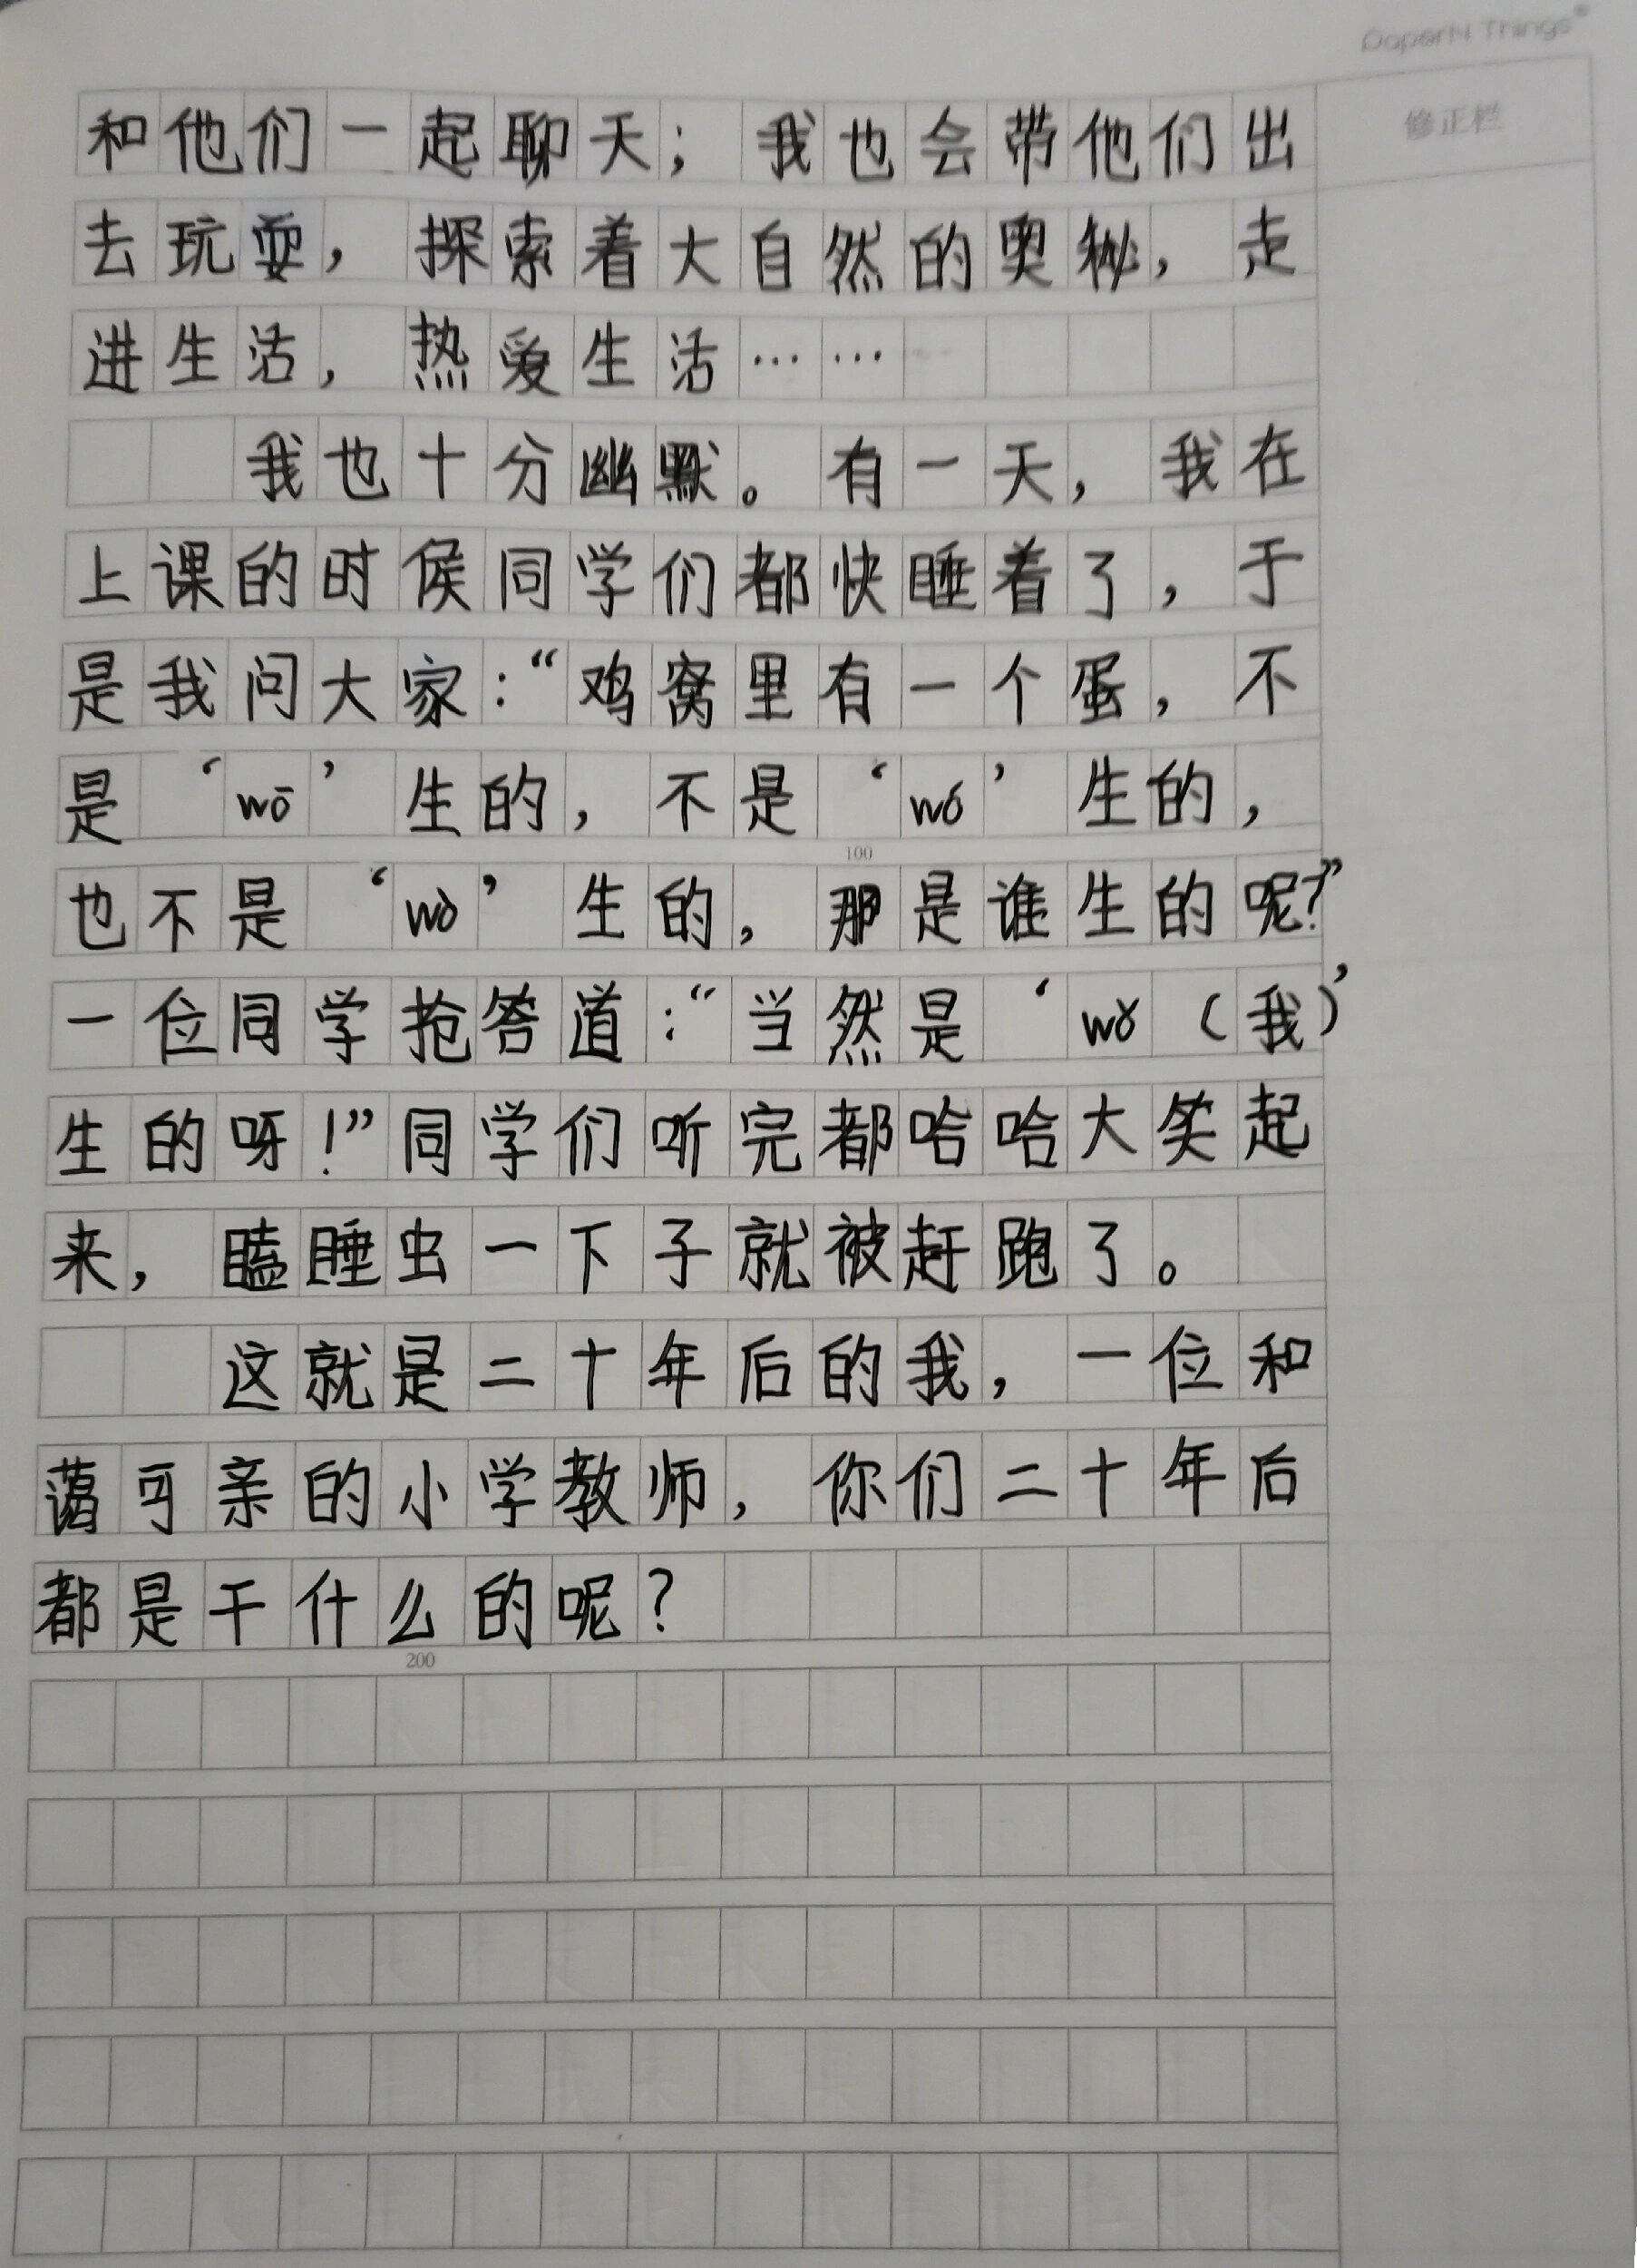 PaperN Things®
修正栏
和他们一起聊天；我也会带他们出
去玩耍，探索着大自然的奥秘，走
进生活，热爱生活……
我也十分幽默。有一天，我在
上课的时侯同学们都快睡着了，于
是我问大家：“鸡窝里有一个蛋，不
是‘wō’生的，不是‘wó’生的，
100
也不是‘wò’生的，那是谁生的呢？”
一位同学抢答道：“当然是‘wǒ（我）’
生的呀！”同学们听完都哈哈大笑起
来，瞌睡虫一下子就被赶跑了。
这就是二十年后的我，一位和
蔼可亲的小学教师，你们二十年后
都是干什么的呢？
200